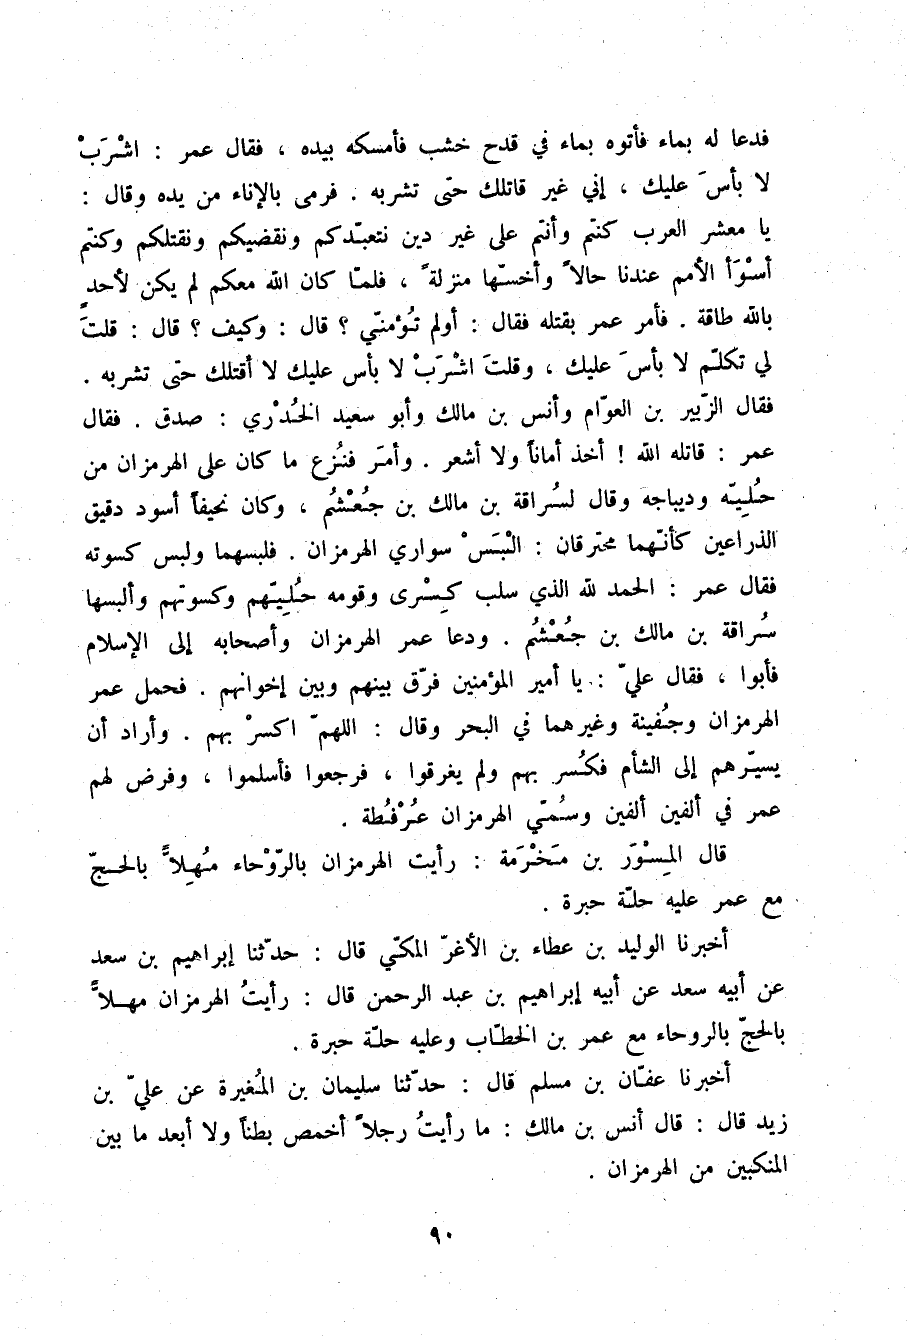 فدعا له بماء فأتوه بماء في قدح خشب فأمسكه بيده ، فقال عمر : اشْرَبْ
لا بأسَ عليك ، إني غير قاتلك حتّى تشربه . فرمى بالإناء من يده وقال :
يا معشر العرب كنتم وأنتم على غير دين نتعبّدكم ونقضيكم ونقتلكم وكنتم
أسْوَأ الأمم عندنا حالاً وأخسّها منزلةً ، فلمّا كان الله معكم لم يكن لأحدٍ
بالله طاقة . فأمر عمر بقتله فقال : أولم تُؤمنّي ؟ قال : وكيف ؟ قال : قلتَ
لي تكلّم لا بأسَ عليك ، وقلتَ اشْرَبْ لا بأس عليك لا أقتلك حتّى تشربه .
فقال الزّبير بن العوّام وأنس بن مالك وأبو سعيد الخُدْري : صدق . فقال
عمر : قاتله الله ! أخذ أماناً ولا أشعر . وأمَر فنُزع ما كان على الهرمزان من
حُلِيّه وديباجه وقال لسُراقة بن مالك بن جُعْشُم ، وكان نحيفاً أسود دقيق
الذراعين كأنّهما محترقان : الْبَسْ سواري الهرمزان . فلبسهما ولبس كسوته
فقال عمر : الحمد لله الذي سلب كِسْرى وقومه حُلِيّهم وكسوتهم وألبسها
سُراقة بن مالك بن جُعْشُم . ودعا عمر الهرمزان وأصحابه إلى الإسلام
فأبوا ، فقال عليّ : يا أمير المؤمنين فرّق بينهم وبين إخوانهم . فحمل عمر
الهرمزان وجُفينة وغيرهما في البحر وقال : اللهمّ اكسرْ بهم . وأراد أن
يسيّرهم إلى الشأم فكُسر بهم ولم يغرقوا ، فرجعوا فأسلموا ، وفرض لهم
عمر في ألفين ألفين وسُمّي الهرمزان عُرْفُطة .
قال المِسْوَر بن مَخْرَمة : رأيت الهرمزان بالرّوْحاء مُهِلاًّ بالحجّ
مع عمر عليه حلّة حبرة .
أخبرنا الوليد بن عطاء بن الأغرّ المكّي قال : حدّثنا إبراهيم بن سعد
عن أبيه سعد عن أبيه إبراهيم بن عبد الرحمن قال : رأيتُ الهرمزان مهلاًّ
بالحجّ بالروحاء مع عمر بن الخطّاب وعليه حلّة حبرة .
أخبرنا عفّان بن مسلم قال : حدّثنا سليمان بن المُغيرة عن عليّ بن
زيد قال : قال أنس بن مالك : ما رأيتُ رجلاً أخمص بطناً ولا أبعد ما بين
المنكبين من الهرمزان .
٩٠